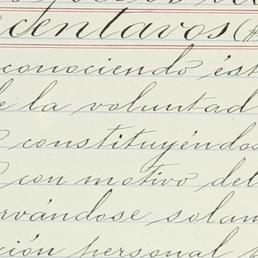 centavos (
conociendo ést
de la voluntad
constituyéndos
con motivo del
rvándose solam
ción personal p